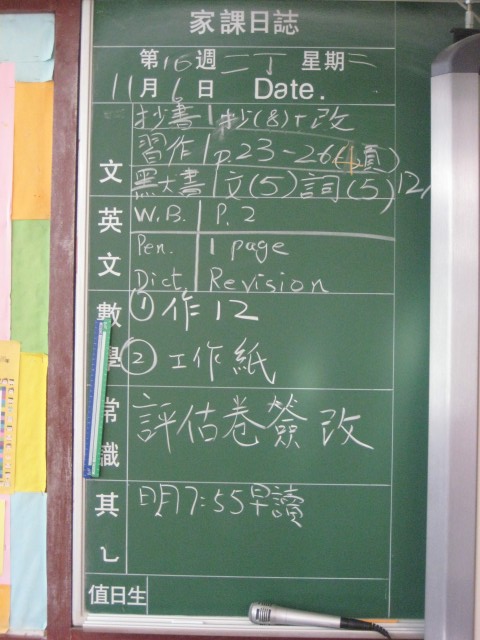 家課日誌
第16週 二丁 星期三
11月6日 Date.
文
抄書 1 抄(8)+改
習作 p.23-26(4頁)
默大書 文(5)詞(5),12,
英文
W.B. P.2
Pen. 1 page
Dict. Revision
數學
① 作12
② 工作紙
常識
評估卷簽改
其乀
明7:55早讀
值日生